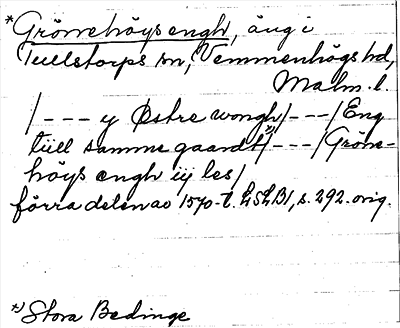 *Grönehöys engh, äng i
Tullstorps sn, Vemmenhögs hd,
Malm. l.
/ - - - y Østre wongh/ - - - / Eng
tüll samme gaardt*) / - - - / Gröne-
höys engh iij les/
förra delen av 1570-t. LSLB1, s. 292. orig.
*) Stora Bedinge